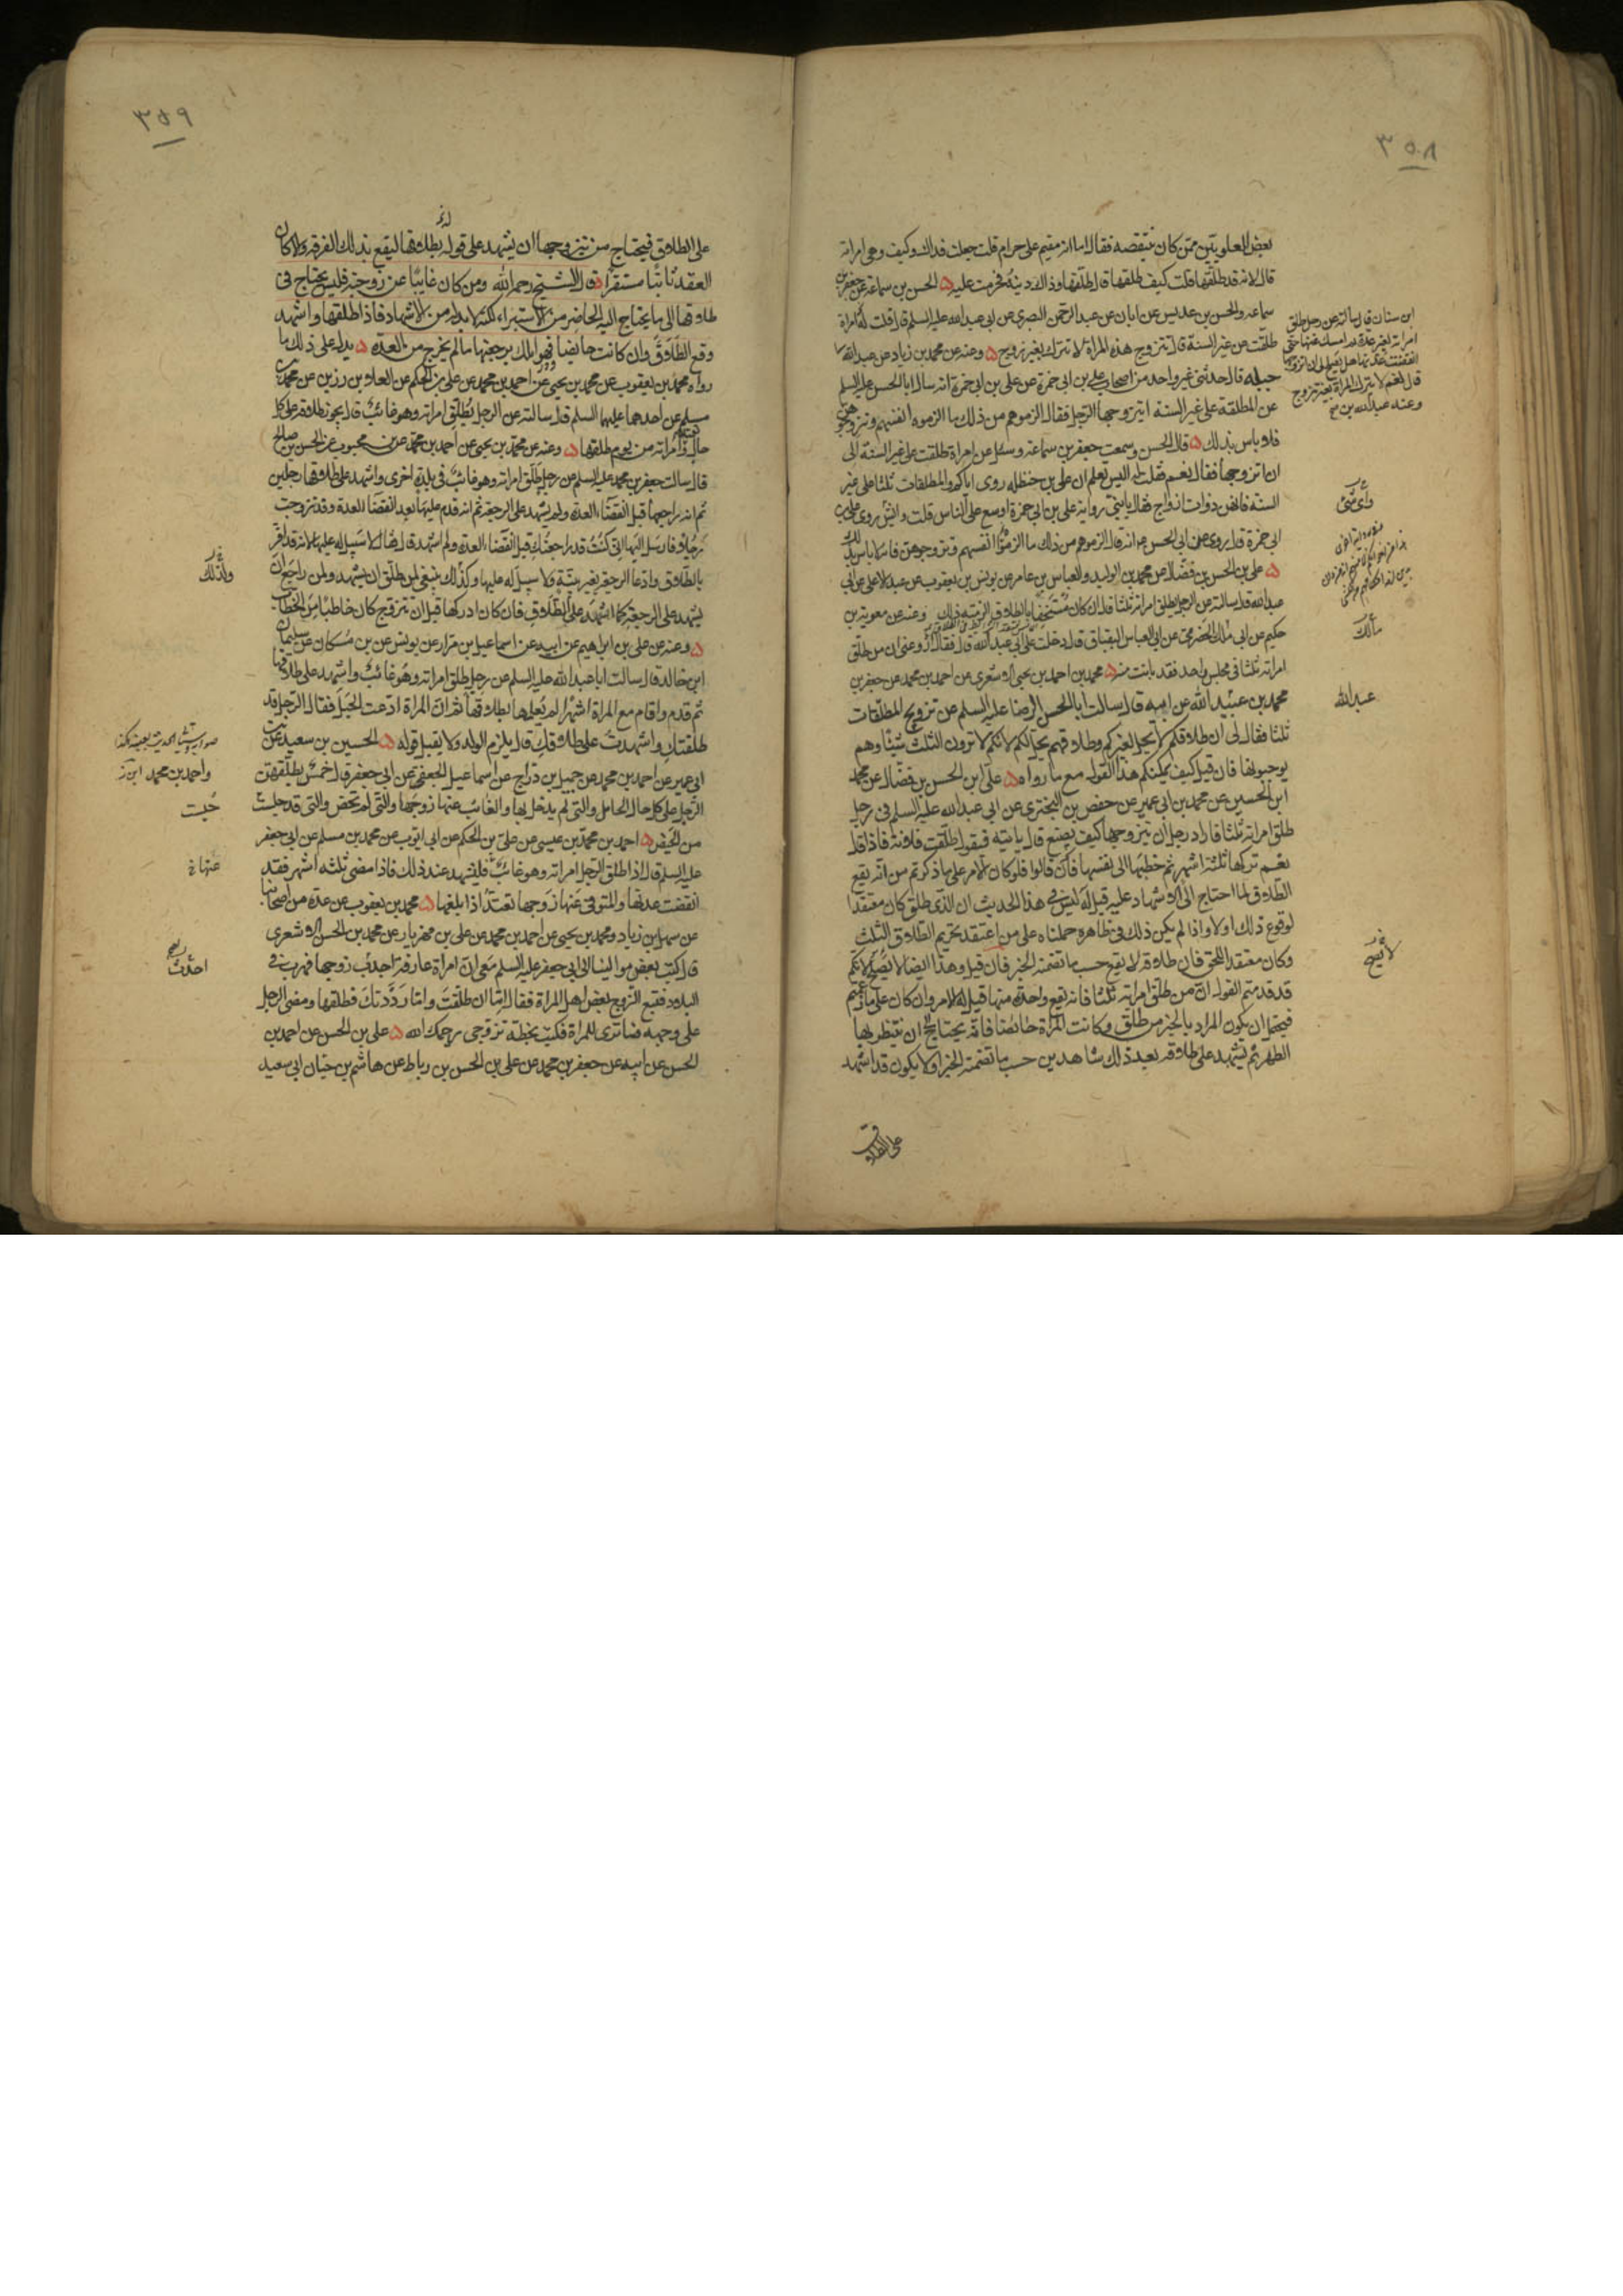 ٣٥٨
بعض العلويين ممن كان ينتقصه فقال اما انه مقيم على حرام قلت جعلت فداك وكيف وهي امراته
قال لانه قد طلقها قلت كيف طلقها قال طلقها وذاك دينه فحرمت عليه ۵ الحسن بن سماعة عن جعفر بن
سماعه والحسن بن عديس عن ابان عن عبد الرحمن البصري عن ابي عبد الله عليه السلم قال قلت له امراة
طلقت من غير السنة قال تتزوج هذه المراة لا تترك بغير زوج ۵ وعنه عن محمد بن زياد عن عبد الله
ابن سنان قال سالته عن رجل طلق
امراته لغير عدة ثم امسك عنها حتى
انقضت عدتها هل يصلح لي ان اتزوجها
قال نعم لا تترك المراة بغير زوج
وعنه عبد الله بن
جبله قال حدثني غير واحد من اصحاب علي بن ابي حمزة عن علي بن ابي حمزة انه سال ابا الحسن عليه السلم
عن المطلقة على غير السنة ايتزوجها الرجل فقال الزموهم من ذلك ما الزموه انفسهم وتزوجوهن
فلا باس بذلك ۵ قال الحسن وسمعت جعفر بن سماعة وسئل عن امراة طلقت على غير السنة الي
ان اتزوجها فقال نعم فقلت له اليس تعلم ان علي بن حنظله روى اياكم والمطلقات ثلثا على غير
السنة فانهن ذوات ازواج فقال يا بني رواية علي بن ابي حمزة اوسع على الناس قلت واي شي روى علي بن
ابي حمزة قال روى عن ابي الحسن ع انه قال الزموهم من ذلك ما الزموا انفسهم وتزوجوهن فانه لا باس بذلك
۵ علي بن الحسن بن فضال عن محمد بن الوليد والعباس بن عامر عن يونس بن يعقوب عن عبد الاعلى عن ابي
عبد الله قال سالته عن الرجل يطلق امراته ثلثا قال ان كان مستخفا بالطلاق الزمته ذلك وعنه عن معوية بن
حكيم عن ابي مالك الحضرمي عن ابي العباس البقباق قال دخلت على ابي عبد الله قال فقال لي ارو عني ان من طلق
امراته ثلثا في مجلس واحد فقد بانت منه ۵ محمد بن احمد بن يحيى الاشعري عن احمد بن محمد عن جعفر بن
محمد بن عبيد الله عن ابيه قال سالت ابا الحسن الرضا عليه السلم عن تزويج المطلقات
ثلثا فقال لي ان طلاقكم لا يحل لغيركم وطلاقهم يحل لكم لانكم لا ترون الثلث شيئا وهم
يوجبونها فان قيل كيف يمكنكم هذا القول مع ما رواه ۵ علي ابن الحسن بن فضال عن محمد
ابن الحسين عن محمد بن ابي عمير عن حفص بن البختري عن ابي عبد الله عليه السلم في رجل
طلق امراته ثلثا فاراد رجل ان يتزوجها كيف يصنع قال ياتيه فيقول طلقت فلانة فاذا قال
نعم تركها ثلثة اشهر ثم خطبها الى نفسها فان قالوا فلو كان الامر على ما ذكرتم من انه يقع
الطلاق لما احتاج الى الاشهاد عليه قيل له ليس في هذا الحديث ان الذي طلق كان معتقدا
لوقوع ذلك اولا واذا لم يكن ذلك في ظاهره حملناه على من اعتقد تحريم الطلاق الثلث
وكان معتقد اللحق فان طلاقه لا يقع حسب ما تضمنه الخبر فان قيل وهذا ايضا لا يصح لانكم
قد قدمتم القول ان من طلق امراته ثلثا فانه يقع واحدة منها قيل له الامر وان كان على ما زعمتم
فيحتمل ان يكون المراد بالخبر من طلق وكانت المراة حائضا فانه يحتاج ان ينتظر بها
الطهر ثم يشهد على طلاقه بعد ذلك شاهدين حسب ما تضمنه الخبر اولا يكون قد اشهد
واي شي
مالك
عبد الله
لا يصح
على الطلاق
٣٥٩
على الطلاق فيحتاج من يتزوجها ان يشهد على قوله بطلاقها ليقع بذلك الفرقه والا كان
العقد ثابتا مستقرا قال الشيخ رحمه الله ومن كان غايبا عن زوجته فليس يحتاج في
طلاقها الى ما يحتاج اليه الحاضر من الاستبراء لكنه لا بد له من الاشهاد فاذا طلقها واشهد
وقع الطلاق وان كانت حايضا فهو املك برجعتها ما لم يخرج من العدة ۵ يدل على ذلك ما
رواه محمد بن يعقوب عن محمد بن يحيى عن احمد بن محمد عن علي بن الحكم عن العلاء بن رزين عن محمد بن
مسلم عن احدهما عليهما السلم قال سالته عن الرجل يطلق امراته وهو غائب قال يجوز طلاقه على كل
حال وتعتد امراته من يوم طلقها ۵ وعنه عن محمد بن يحيى عن احمد بن محمد عن بن محبوب عن الحسن بن صالح
قال سالت جعفر بن محمد عليه السلم عن رجل طلق امراته وهو غائب في بلدة اخرى واشهد على طلاقها رجلين
ثم انه راجعها قبل انقضاء العدة ولم يشهد على الرجعة ثم انه قدم عليها بعد انقضا العدة وقد تزوجت
رجلا فارسل اليها اني كنت قد راجعتك قبل انقضاء العدة ولم اشهد قال فقال لا سبيل له عليها لانه قد اقر
بالطلاق وادعا الرجعة بغير بينة فلا سبيل له عليها وكذلك ينبغي لمن طلق ان يشهد ولمن راجع ان
يشهد على الرجعة كما اشهد على الطلاق فان كان ادركها قبل ان تتزوج كان خاطبا من الخطاب
۵ وعنه عن علي بن ابراهيم عن ابيه عن اسماعيل بن مرار عن يونس عن بن مسكان عن سليمان
ابن خالد قال سالت ابا عبد الله عليه السلم عن رجل طلق امراته وهو غائب واشهد على طلاقها
ثم قدم واقام مع المراة اشهرا لم يعلمها بطلاقها ثم ان المراة ادعت الحبل فقال الرجل قد
طلقتك واشهدت على طلاقك قال يلزم الولد ولا يقبل قوله ۵ الحسين بن سعيد عن
ابي عمير عن احمد بن محمد عن جميل بن دراج عن اسماعيل الجعفي عن ابي جعفر قال خمس يطلقهن
الرجل على كل حال الحامل والتي لم يدخل بها والغائب عنها زوجها والتي لم تحض والتي قد جلست
من الحيض ۵ احمد بن محمد بن عيسى عن علي بن الحكم عن ابي ايوب عن محمد بن مسلم عن ابي جعفر
عليه السلم قال اذا طلق الرجل امراته وهو غائب فليشهد عند ذلك فاذا مضى ثلثه اشهر فقد
انقضت عدتها والمتوفى عنها زوجها تعتد اذا بلغها ۵ محمد بن يعقوب عن عدة من اصحابنا
عن سهل بن زياد ومحمد بن يحيى عن احمد بن محمد عن علي بن مهزيار عن محمد بن الحسن الاشعري
قال كتب بعض موالينا الى ابي جعفر عليه السلم معي ان امراة عارفة احدث زوجها فهرب في
البلاد فتبع الزوج بعض اهل المراة فقال اما ان طلقت واما رددتك فطلقها ومضى الرجل
على وجهه فما ترى للمراة فكتب بخطه تزوجي يرحمك الله ۵ علي بن الحسن عن احمد بن
الحسن عن ابيه عن جعفر بن محمد عن علي بن الحسن بن رباط عن هاشم بن حيان ابي سعيد
وكذلك
واحمد بن محمد
عنها
احدث